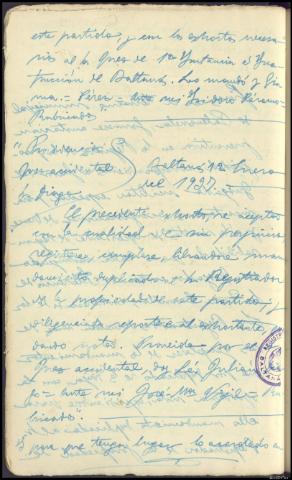 este partido, y con los exhortos necesa-
rios al Sr. Juez de 1ª Instancia e Ins-
trucción de Baltanás. Lo mandó y fir-
ma.= Pérez= ante mi: Isidoro Páramo=
Rubricado
"Providencia Juez accidental
Sr. Diez Baltanás 12 Enero
del 1927.
El precedente exhorto, se acepta
con la cualidad de sin perjuicio
regístrese, cúmplase, librándose man-
damiento duplicado a Registrador
de la propiedad de este partido, y
diligenciado reportese al exhortante,
dando nota. Proveido por el
Juez accidental
jo= ante mi: José Mª Vigil= Ru-
bricado".
Y para que tenga lugar lo acordado a